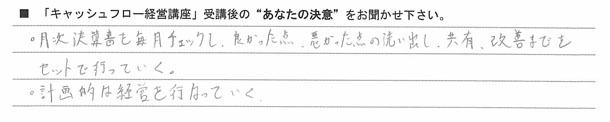 ■ 「キャッシュフロー経営講座」受講後の“あなたの決意”をお聞かせ下さい。
・月次決算書を毎月チェックし、良かった点、悪かった点の洗い出し、共有、改善までを
セットで行っていく。
・計画的な経営を行なっていく